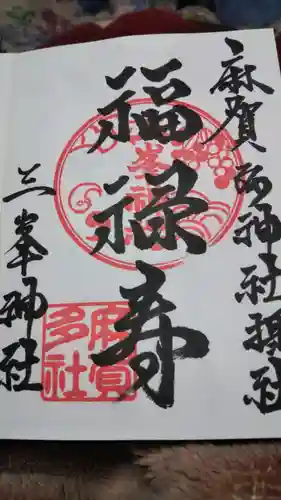 麻賀多神社摂社
福禄寿
三峯神社
麻賀
多社